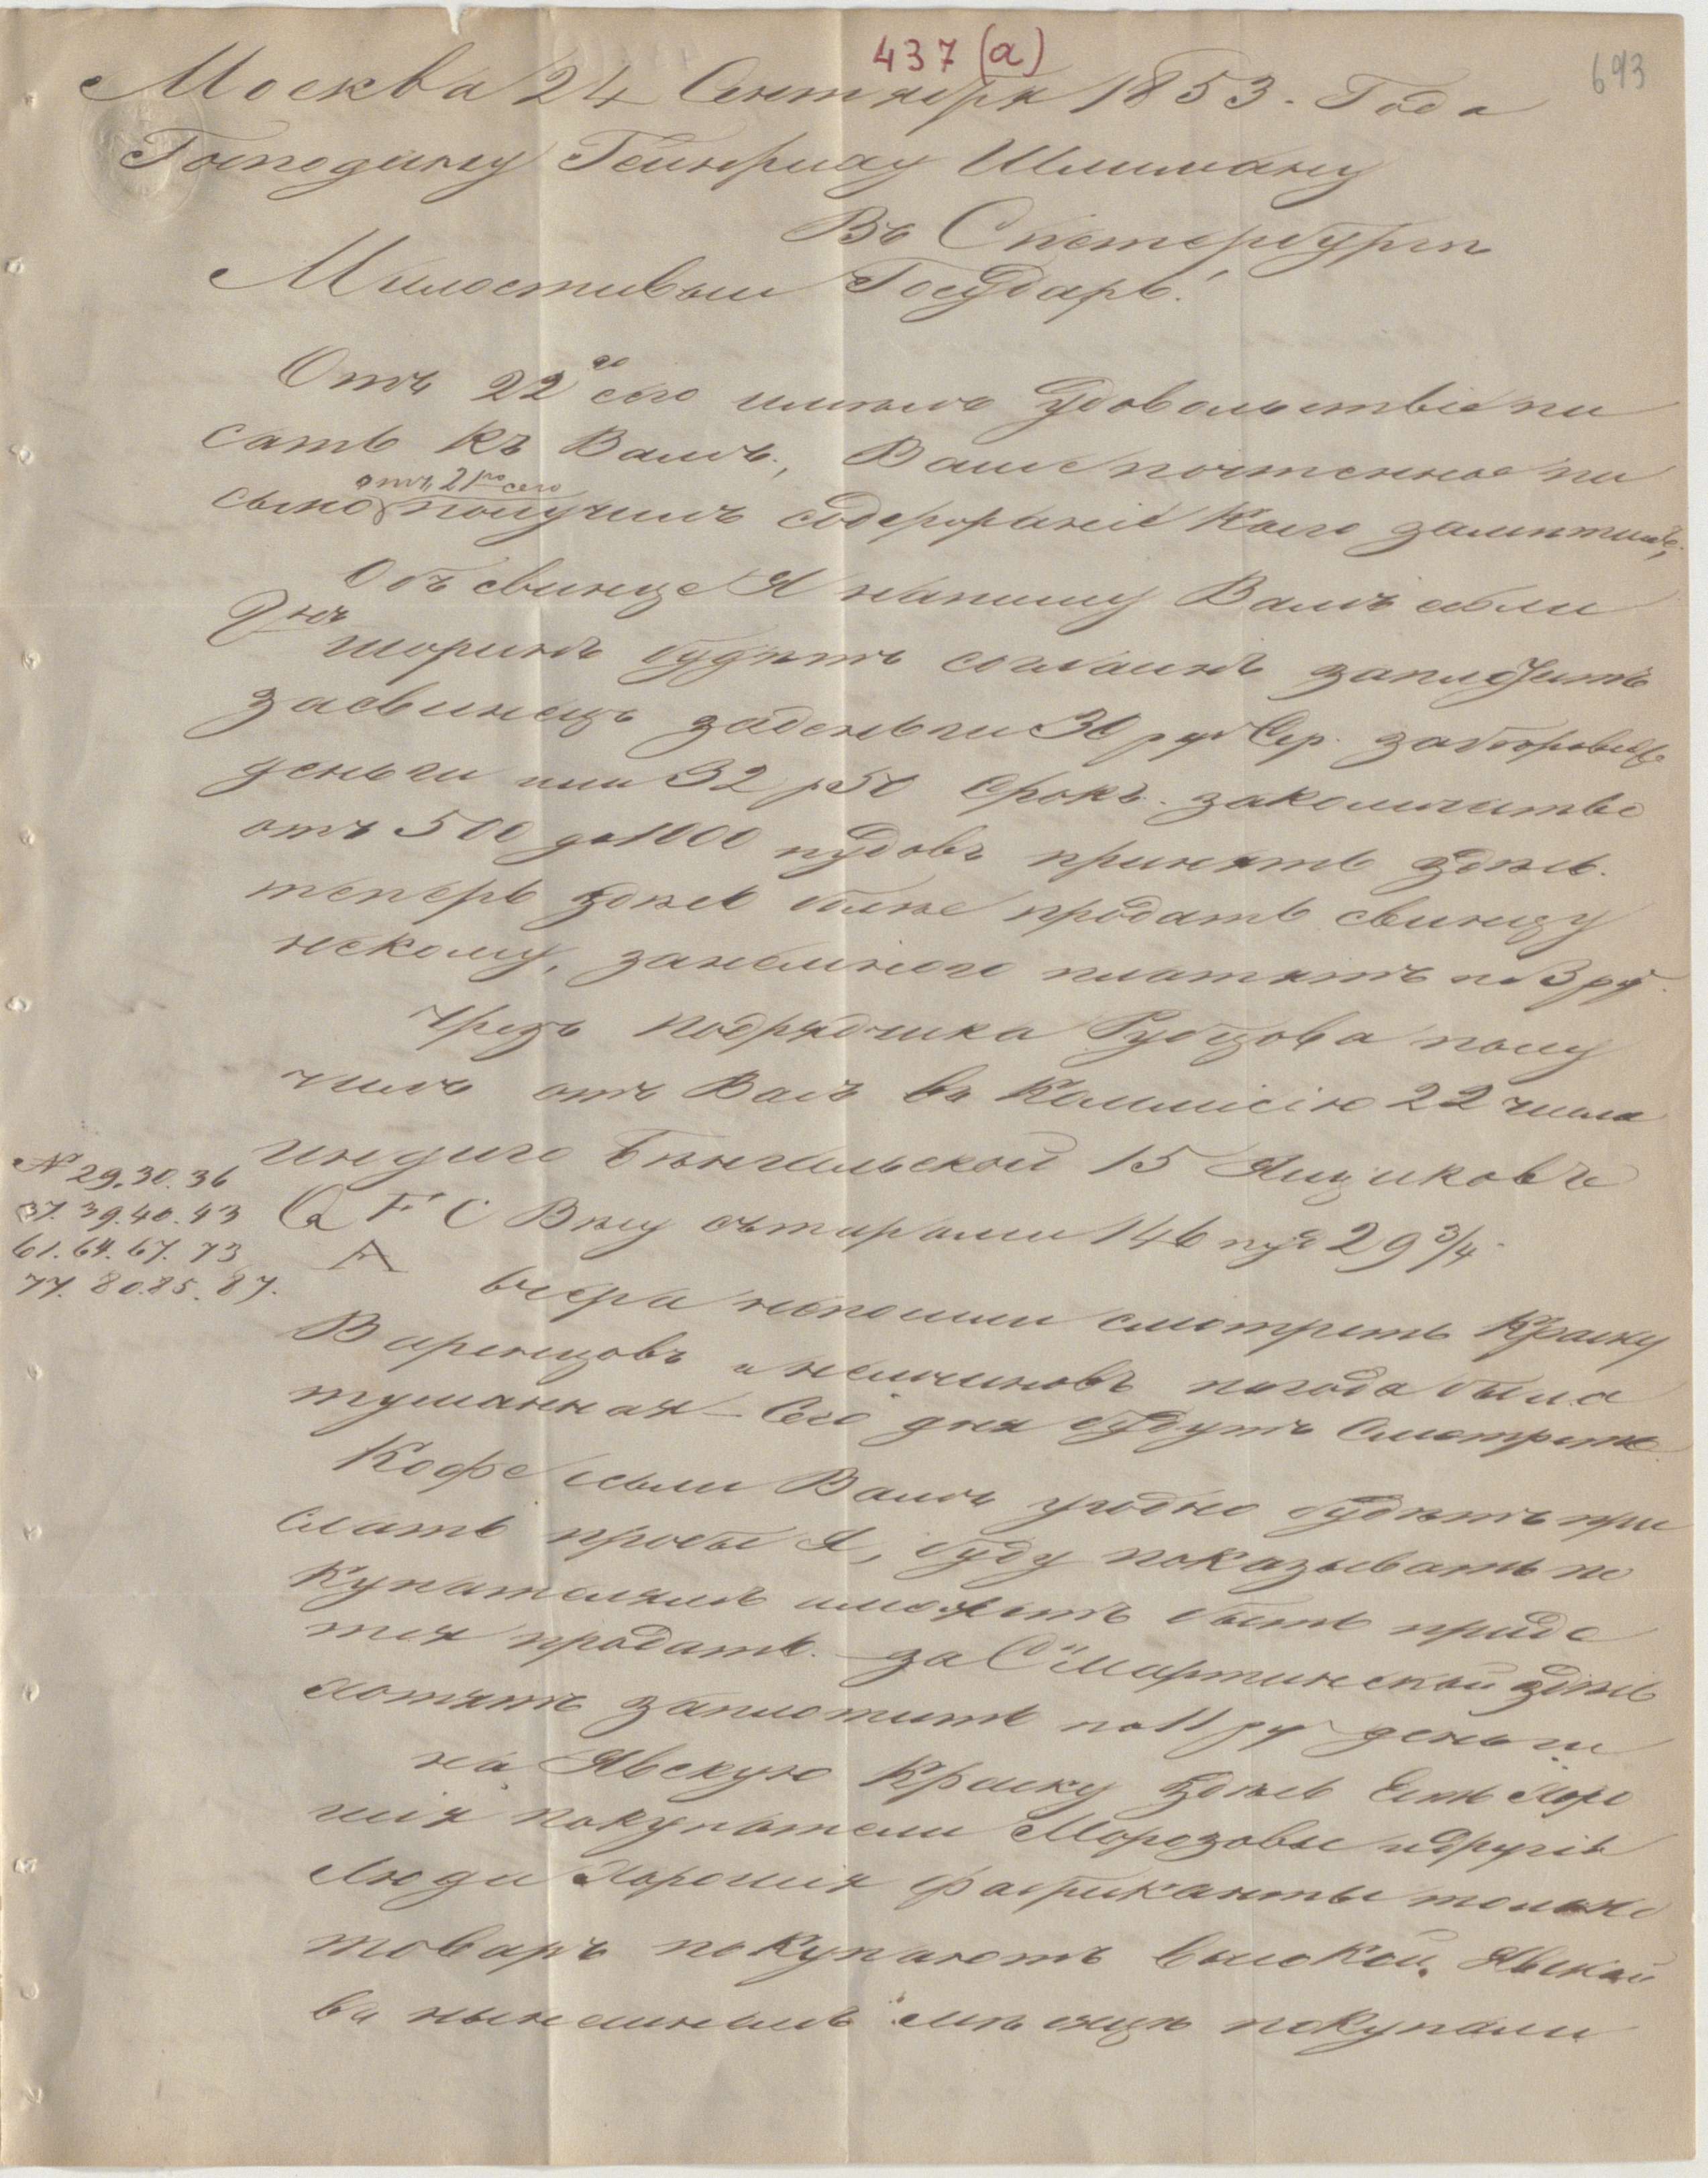 437 (a)
693
Москва 24 Сентября 1853. Года
Господину Гейнриху Шлиману
Въ Спетербургъ
Милостивыи Государь!
Отъ 22го сего имѣлъ удовольствіе пи
сать къ Вамъ, Ваше почтенное пи
отъ 21го сего
сьмо получилъ содержаніе коего замѣтилъ,
Объ свинце Я напишу Вамъ если
шоринъ будѣтъ согласнъ заплотить
засвинецъ заденьги 30 руб Сер.
деньги или 32 р 50 срокъ. заколичатво
отъ 500 до 1000 пудовъ принять здѣсь.
теперь здѣсь болѣе продать свинцу
некому, занемного платятъ по 3 ру
Чрезъ подрядчика Рубцова полу
чилъ отъ Васъ въ Коммисію 22 числа
индиго Бѣнгальской 15 Ящиковъ
№ 29. 30. 36
37. 39. 40. 43
61. 64. 67. 73
77. 80. 85. 87.
Q F C Вѣсу стирами 146 пуд 29 3/4
A
вчера непошли смотреть Краску
Варенцовъ и погода была
туманная – Сего дня будутъ Смотреть
Кофе если Вамъ угодно будѣтъ при
слать пробы Я, буду показывать по
купателямъ иможетъ быть приде
тся продать. за Сн Мартинской здѣсь
хотятъ заплотить по 11 ру деньги
на Явскую Краску здѣсь Есть Хоро
шія покупатели Морозовы идругія
Люди Хорошія фабриканты только
товаръ покупаютъ высокой. Явской
въ нынешнемъ мѣсяцѣ покупали